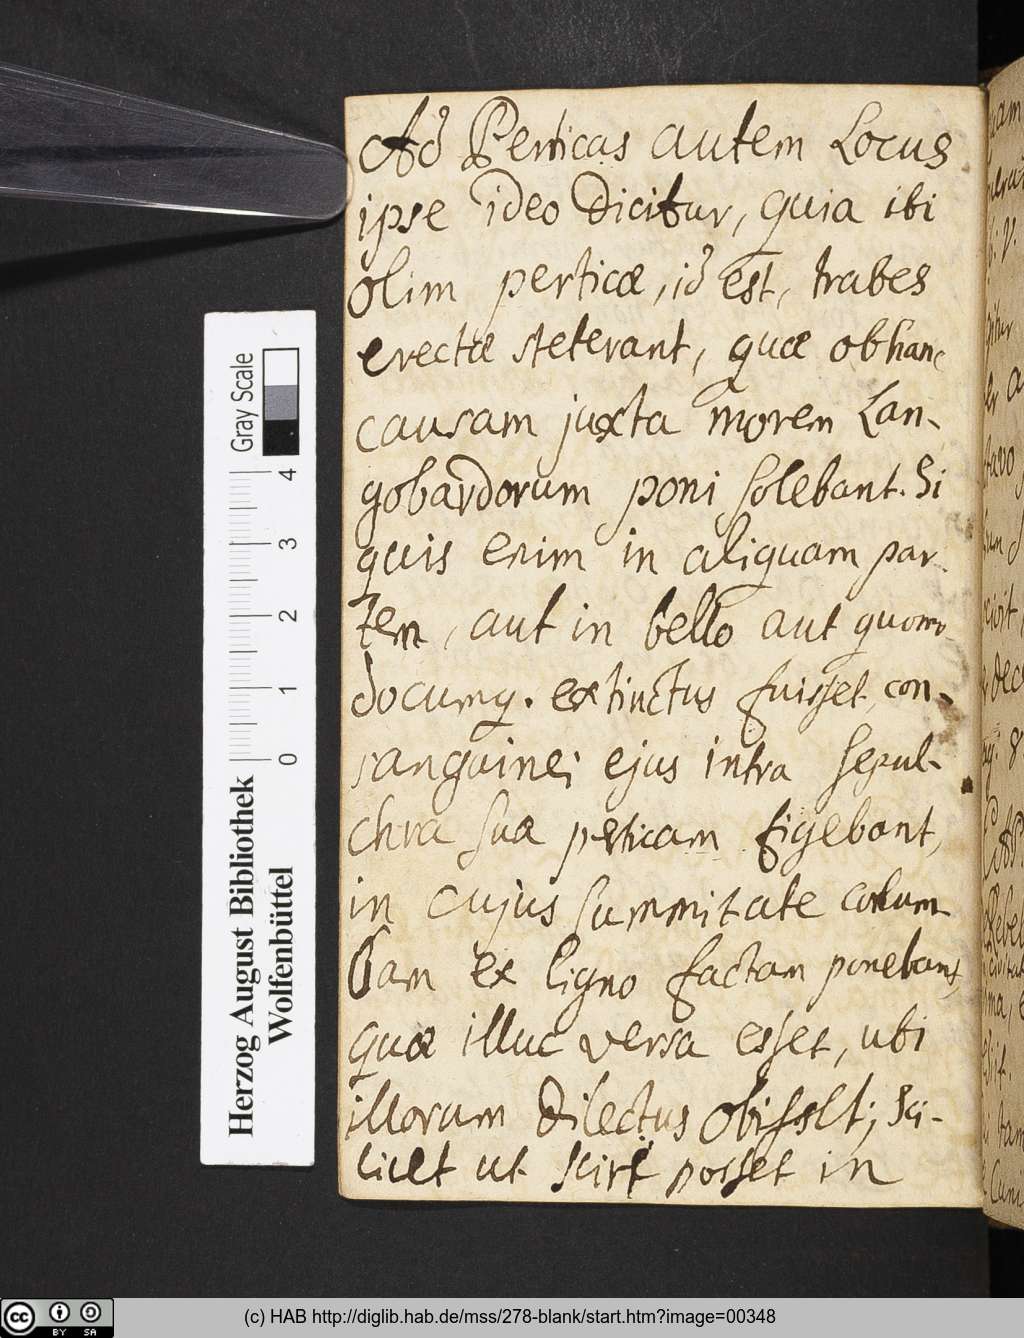 Ad Perticas autem Locus
ipse ideo dicitur, quia ibi
olim perticæ, id est, trabes
erectæ steterant, quæ obhanc
causam juxta morem Lan-
gobardorum poni solebant. Si
quis enim in aliquam par-
tem, aut in bello aut quomo-
documq. extinctus fuisset, con-
sanguinei ejus intra sepul-
chra sua perticam figebant,
in cujus summitate colum-
bam ex ligno factam ponebant,
quæ illuc versa esset, ubi
illorum dilectus obisset; sci-
licet ut sciri posset in
Gray Scale
4
3
2
1
0
Herzog August Bibliothek
Wolfenbüttel
cc BY SA
(c) HAB http://diglib.hab.de/mss/278-blank/start.htm?image=00348